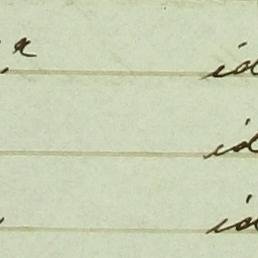 a id
id
id